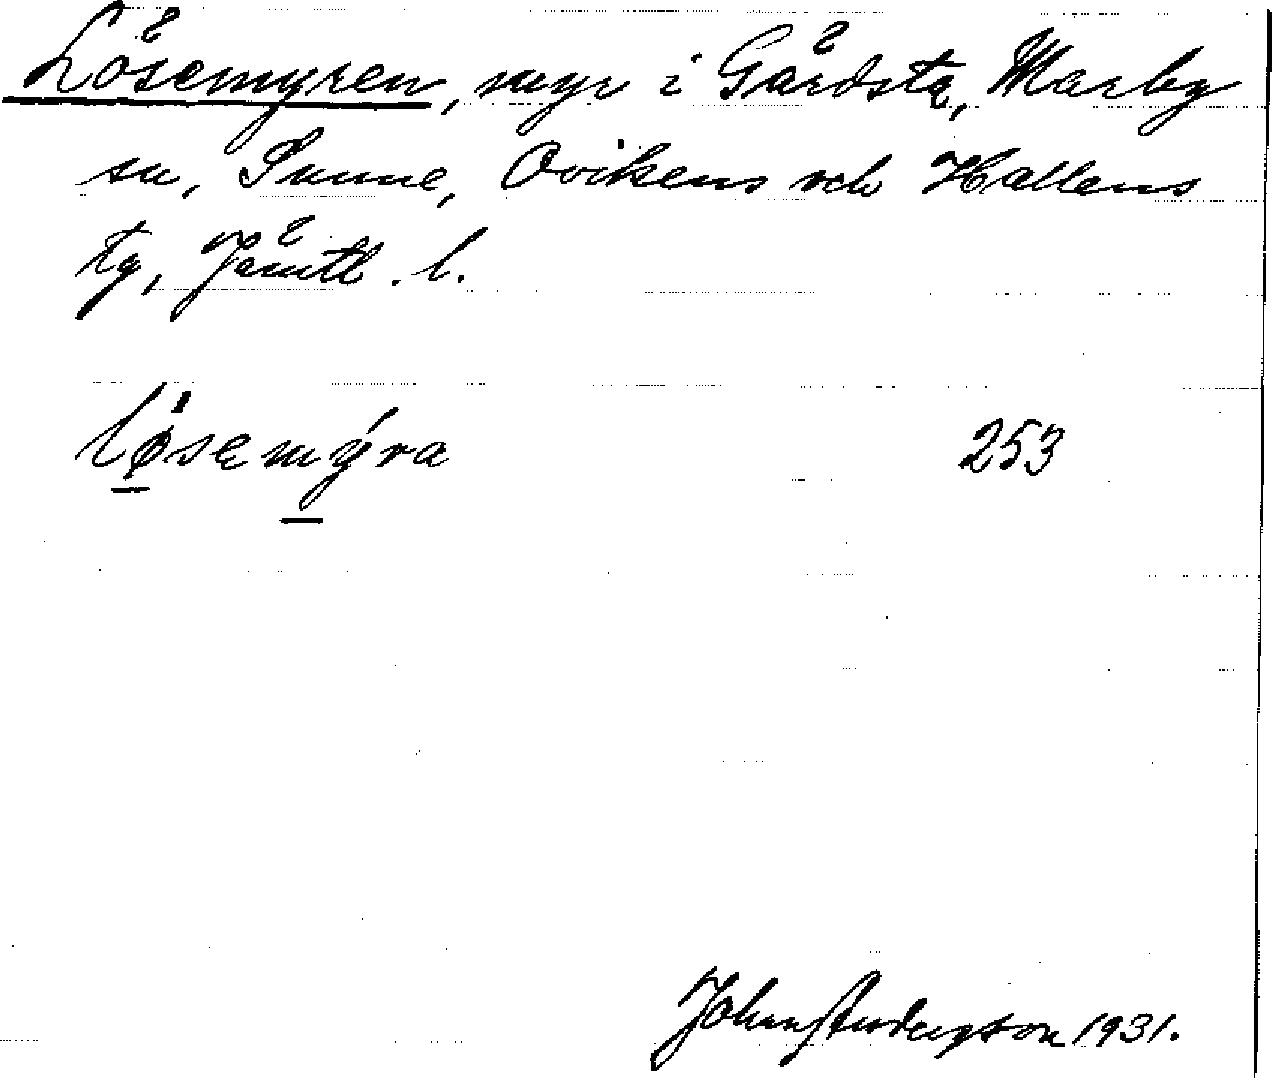 Lösemyren, myr i Gärdsta, Marby
sn, Sunne, Ovikens och Hallens
tg, Jämtl. l.
løsemýra 253
Johan Anderson 1931.